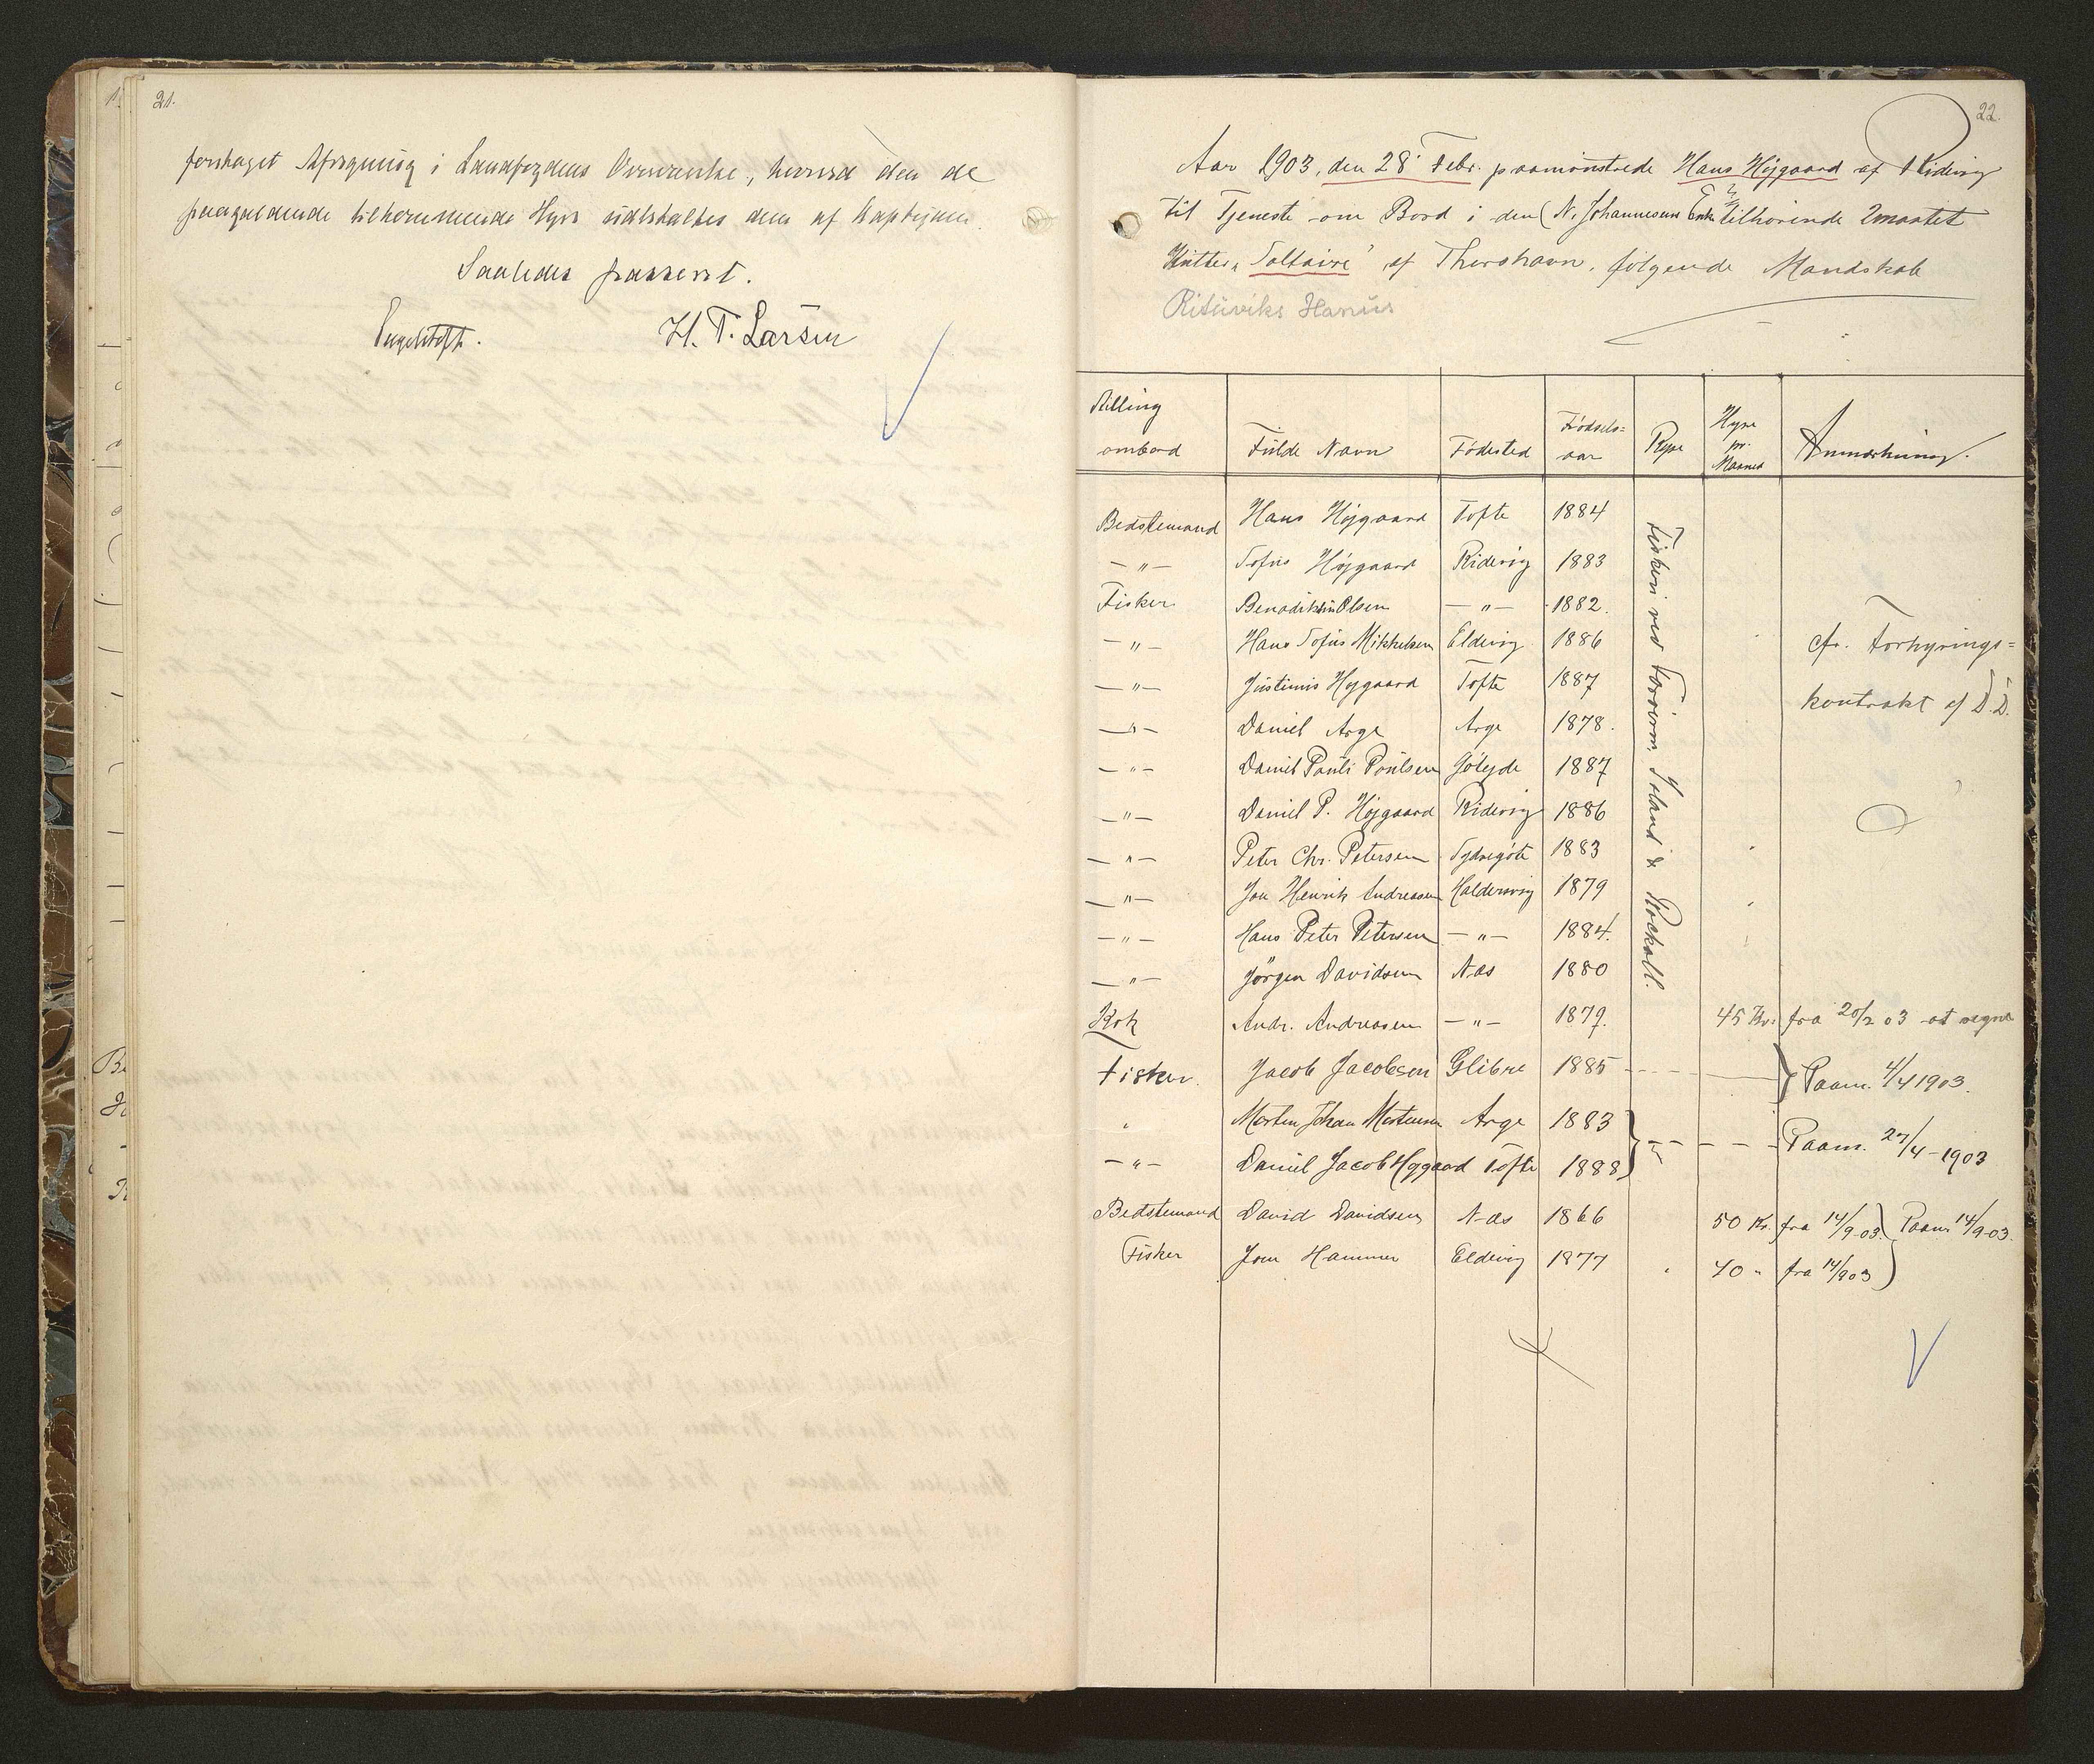 21.
foretaget Afregning i Landfogdens Overværelse, hvorved den de
paagældende tilkommende Hyre udbetaltes dem af Kaptejnen.
Saaledes passeret.
H. T. Larsen
22.
Aar 1903, den 28' Febr. paamönstrede Hans Höjgaard af Ridevig
til Tjeneste om Bord i den (N. Johannesens Enke tilhörende 2mastet
Kutter „Soltaire" af Thorshavn, fölgende Mandskab
Rituviks Hanus
Stilling ombord | Fulde Navn | Födested | Födsels-aar | Rejse | Hyre pr. Maaned | Anmærkning.
Bedstemand | Hans Höjgaard | Tofte | 1884
— " — | Sofus Höjgaard | Ridevig | 1883
Fisker | Benadikt Olsen | — " — | 1882.
— " — | Hans Sofus Mikkelsen | Eldevig | 1886
— " — | Justinus Höjgaard | Tofte | 1887
— " — | Daniel Arge | Arge | 1878.
— " — | Daniel Pauli Poulsen | Göteide | 1887
— " — | Daniel P. Höjgaard | Ridevig | 1886
— " — | Peter Chr. Petersen | Sydregöte | 1883
— " — | Jon Henrik Andreasen | Haldersvig | 1879
— " — | Hans Peter Petersen | — " — | 1884.
— " — | Jörgen Davidsen | Næs | 1880
Fiskeri ved Færöerne, Island & Rockall.
cfr. Forhyrings-
kontrakt af D.D.
Kok | Andr. Andreasen | — " — | 1879. | 45 Kr. | fra 20/2 03 at regne
Fisker. | Jacob Jacobsen | Glibre | 1885 | Paam. 4/4 1903.
" | Morten Johan Mortensen | Arge | 1883 | Paam. 27/4 - 1903
— " — | Daniel Jacob Höjgaard | Tofte | 1888
Bedstemand | David Davidsen | Næs | 1866 | 50 Kr. | fra 14/9 03. | Paam. 14/9 03.
Fisker | Jom Hammer | Eldevig | 1877 | 40 " | fra 14/9 03